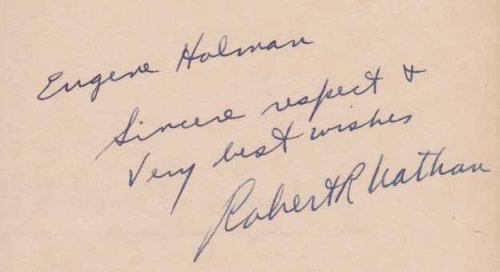 Eugene Holman
Sincere respect &
Very best wishes
Robert R Nathan